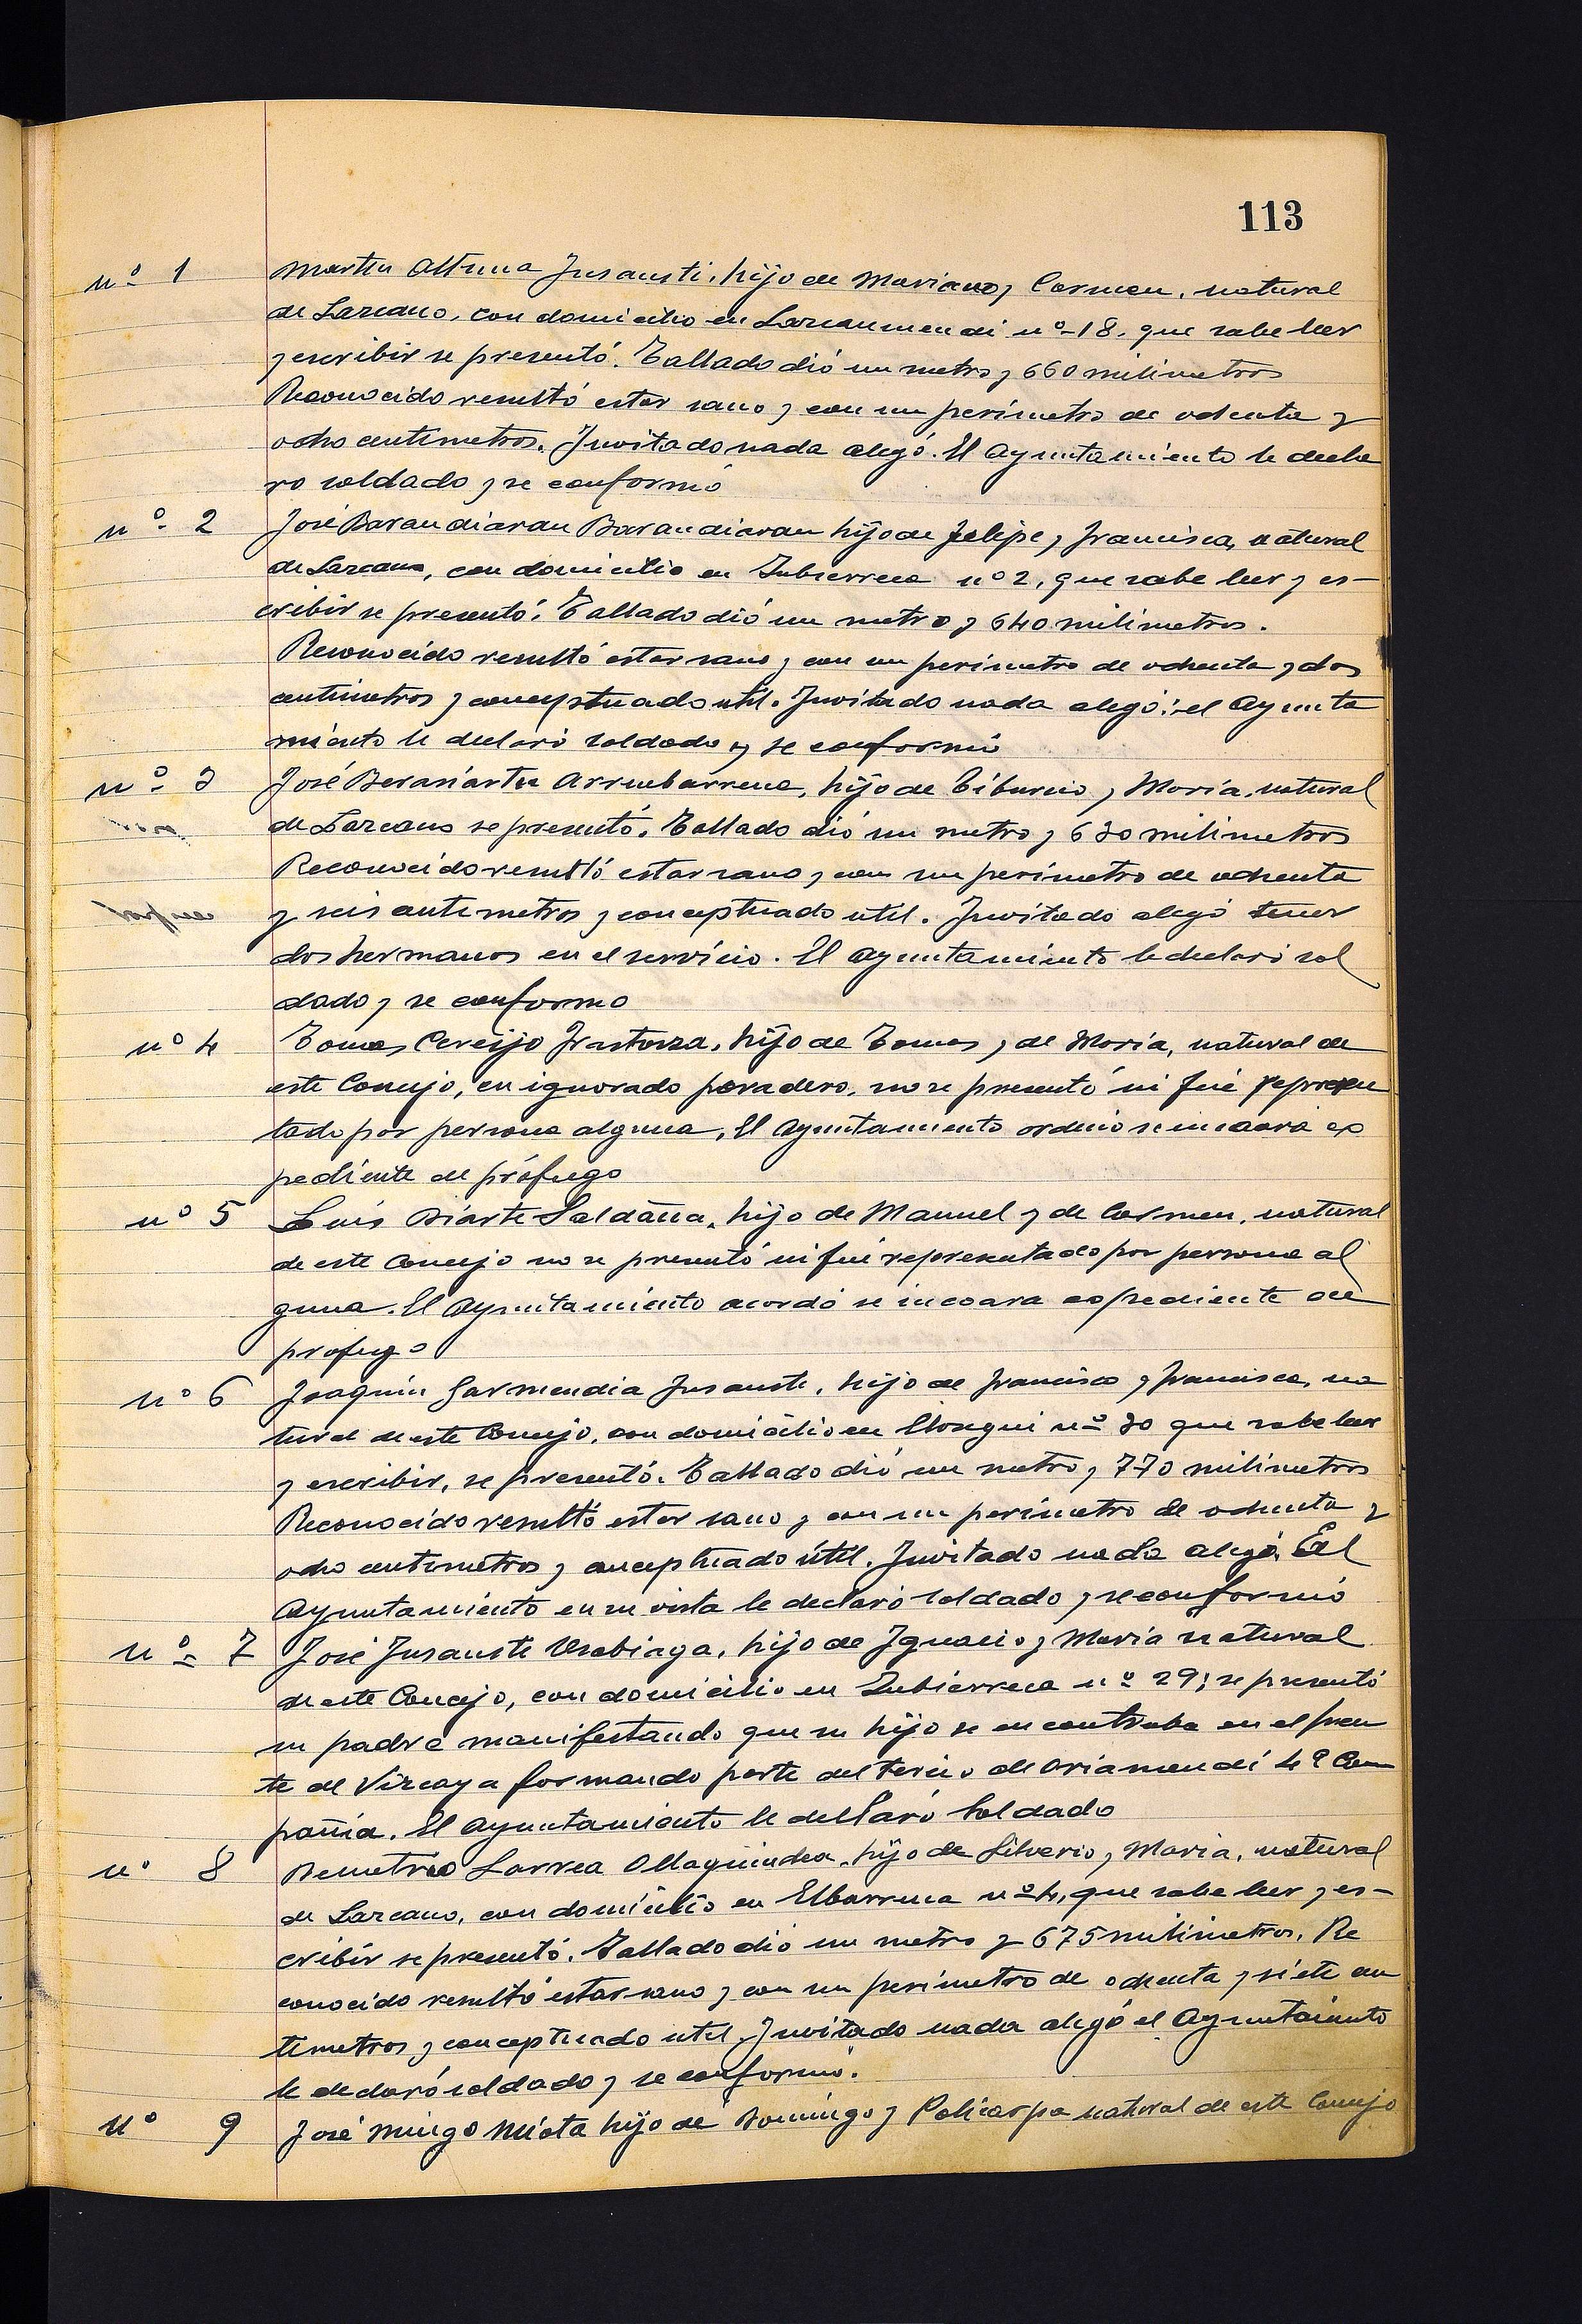 113
nº 1 Martin Altuna Jusausti, hijo de Mariano y Carmen, natural
de Lazcano, con domicilio en Lazcanmendi nº-18, que sabe leer
y escribir se presentó. Tallado dió un metro y 660 milimetros
Reconocido resultó estar sano y con un perímetro de ochenta y
ocho centimetros. Invitado nada alegó. El Ayuntamiento le decla
ro soldado y se conformó
nº 2 José Barandiaran Barandiaran hijo de Felipe y Francisca, natural
de Lazcano, con domicilio en Zubierreca nº 2, que sabe leer y es-
cribir se presentó. Tallado dió un metro y 640 milimetros.
Reconocido resultó estar sano y con un perimetro de ochenta y dos
centimetros y conceptuado util. Invitado nada alegó: el Ayunta
miento le declaró soldado y se conformó
nº 3 José Berasiartu Arruebarrena, hijo de Tiburcio y María, natural
de Lazcano se presentó. Tallado dió un metro y 630 milimetros
Reconocido resultó estar sano y con un perimetro de ochenta
y seis centimetros y conceptuado util. Invitado alegó tener
dos hermanos en el servicio. El Ayuntamiento le declaró sol
dado y se conformo
nº 4 Tomas Cereijo Irastorza, hijo de Tomas y de María, natural de
este Concejo, en ignorado paradero, no se presentó ni fué represen
tado por persona alguna, El Ayuntamiento ordenó se incoara ex
pediente de prófugo
nº 5 Luis Diarte Saldaña, hijo de Manuel y de Carmen, natural
de este Concejo no se presentó ni fué representado por persona al
guna. El Ayuntamiento acordó se incoara expediente de
profugo
nº 6 Joaquín Garmendia Jusausti, hijo de Francisco y Francisca, na
tural de este Concejo, con domicilio en nº 30 que sabe leer
y escribir, se presentó. Tallado dió un metro y 770 milimetros
Reconocido resultó estar sano y con un perímetro de ochenta y
ocho centimetros y conceptuado útil. Invitado nada alegó. El
Ayuntamiento en su vista le declaró soldado y se conformó
nº 7 José Jusausti Usabiaga, hijo de Ignacio y María natural
de este Concejo, con domicilio en Zubierreca nº 29; se presentó
su padre manifestando que su hijo se encontraba en el fren
te de Vizcaya formando parte del tercio de Oriamendi 4ª Com
pañía. El Ayuntamiento le declaró Soldado
nº 8 Demetrio Larrea Ollaquindea, hijo de Silverio y Maria, natural
de Lazcano, con domicilio en Elbarrena nº 4, que sabe leer y es-
cribir se presentó. Tallado dió un metro y 675 milimetros. Re
conocido resultó estar sano y con un perímetro de ochenta y siete cen
timetros y conceptuado util. Invitado nada alegó el Ayuntaiento
le declaró soldado y se conformó.
nº 9 José Mingo Mieta hijo de Domingo y Policarpa natural de este Concejo